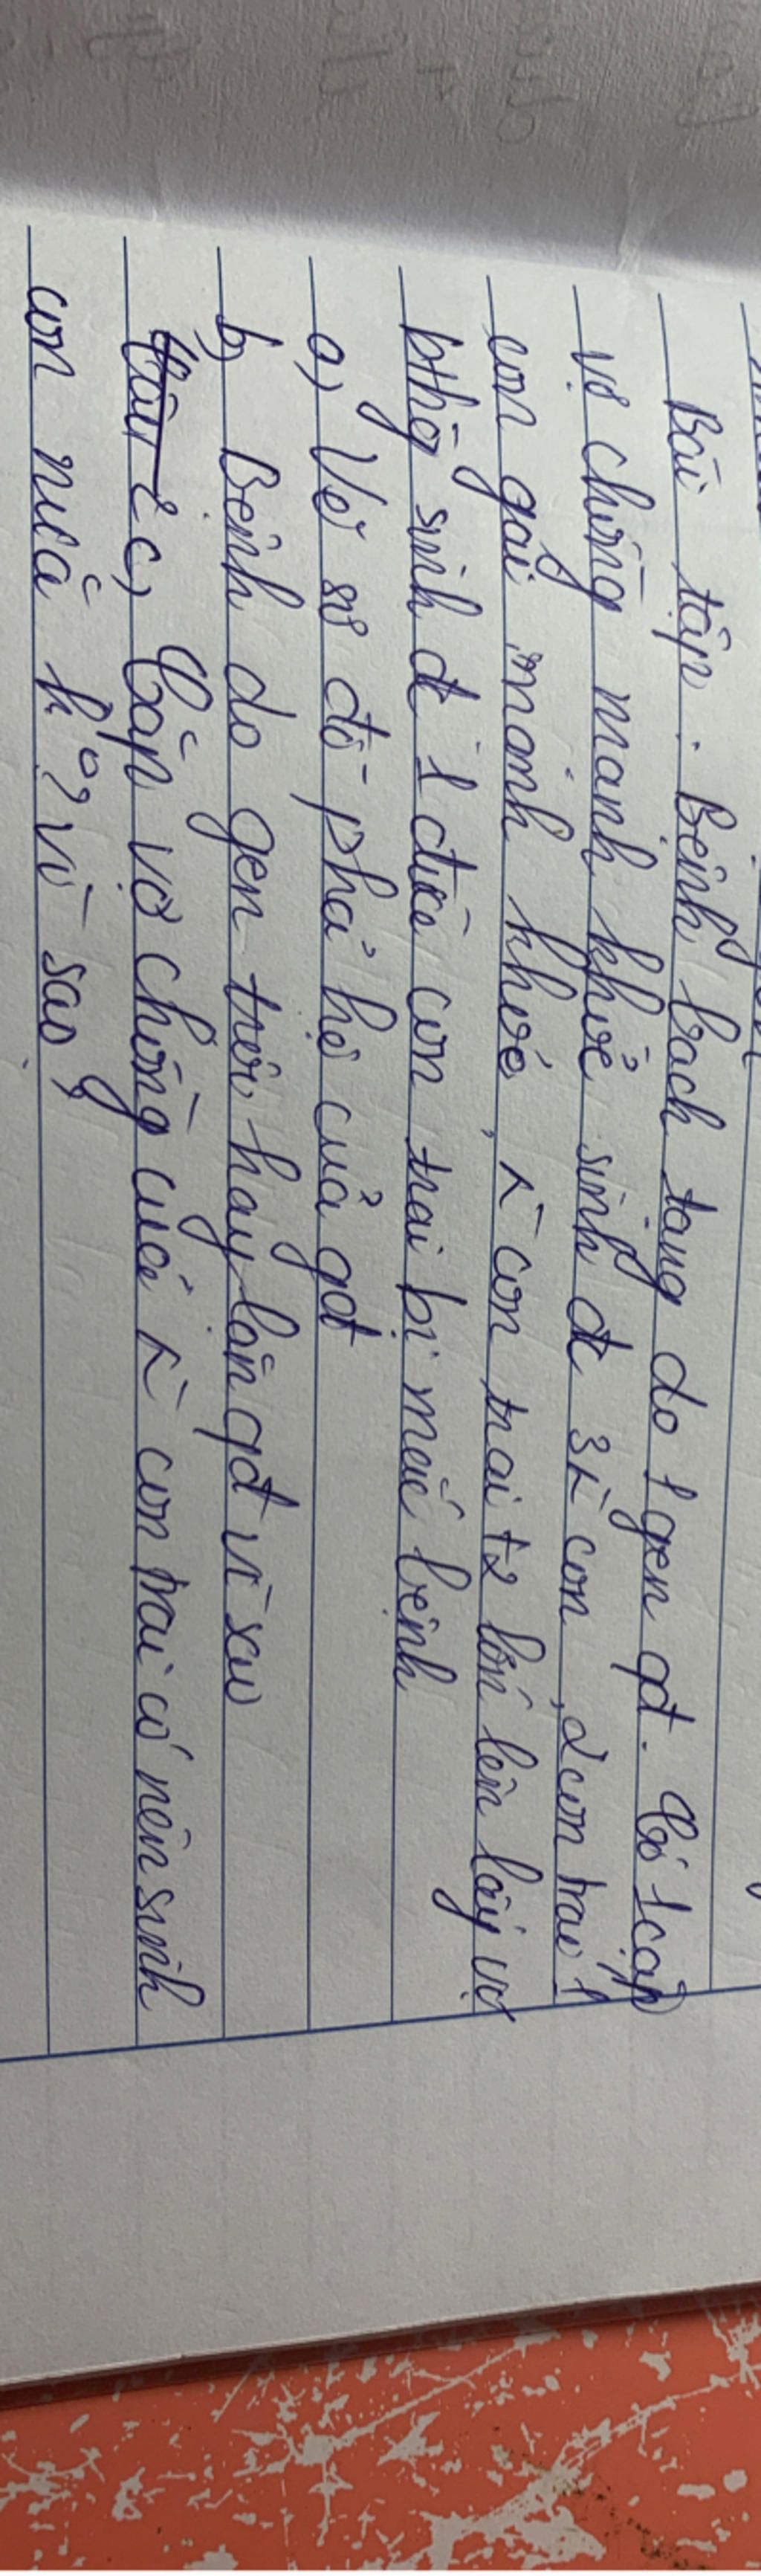 Bài tập: Bệnh bạch tạng do 1 gen qđ. Có 1 cặp
vợ chồng mạnh khỏe sinh đc 3 con, 2 con trai 1
con gái mạnh khoẻ, con trai t2 lớn lên lấy vợ
bthg sinh đc 1 đứa con trai bị mắc bệnh
a, Vẽ sơ đồ phả hệ của gđ
b, Bệnh do gen trội hay lặn qđ vì sao
c, Cặp vợ chồng con trai có nên sinh
con nữa k? vì sao?